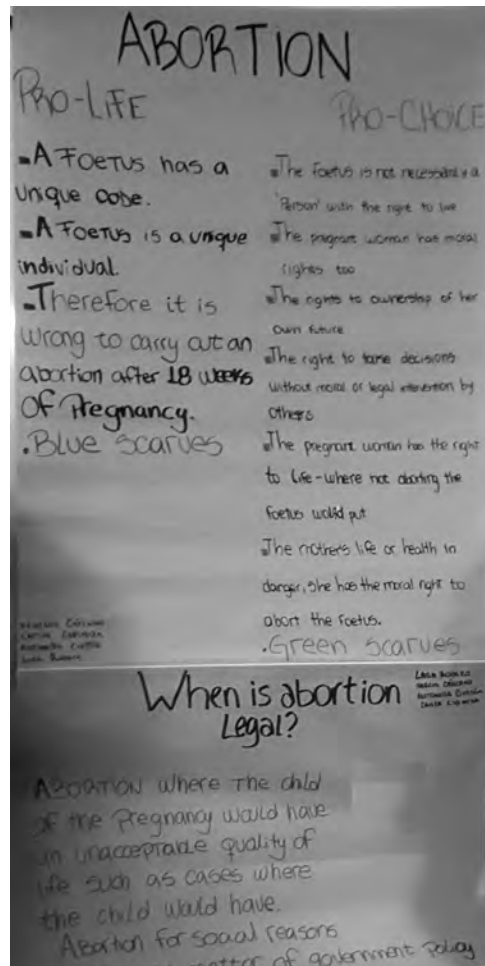 ABORTION
PRO-LIFE
A FOETUS has a
unique CODE.
A FOETUS is a unique
individual.
Therefore it is
wrong to carry out an
abortion after 18 weeks
OF Pregnancy.
Blue scarves
PRO-CHOICE
The Foetus is not necessarily a
'Person' with the right to live
The pregnant woman has moral
rights too
The rights to ownership of her
own future
The right to take decisions
without moral or legal intervention by
others
The pregnant woman has the right
to life-where not aborting the
foetus would put
The mothers life or health in
danger, she has the moral right to
abort the foetus.
Green scarves
When is abortion
Legal?
ABORTION where The child
of the Pregnancy would have
an unacceptable quality of
life such as cases where
the child would have.
Abortion for social reasons
matter of government policy